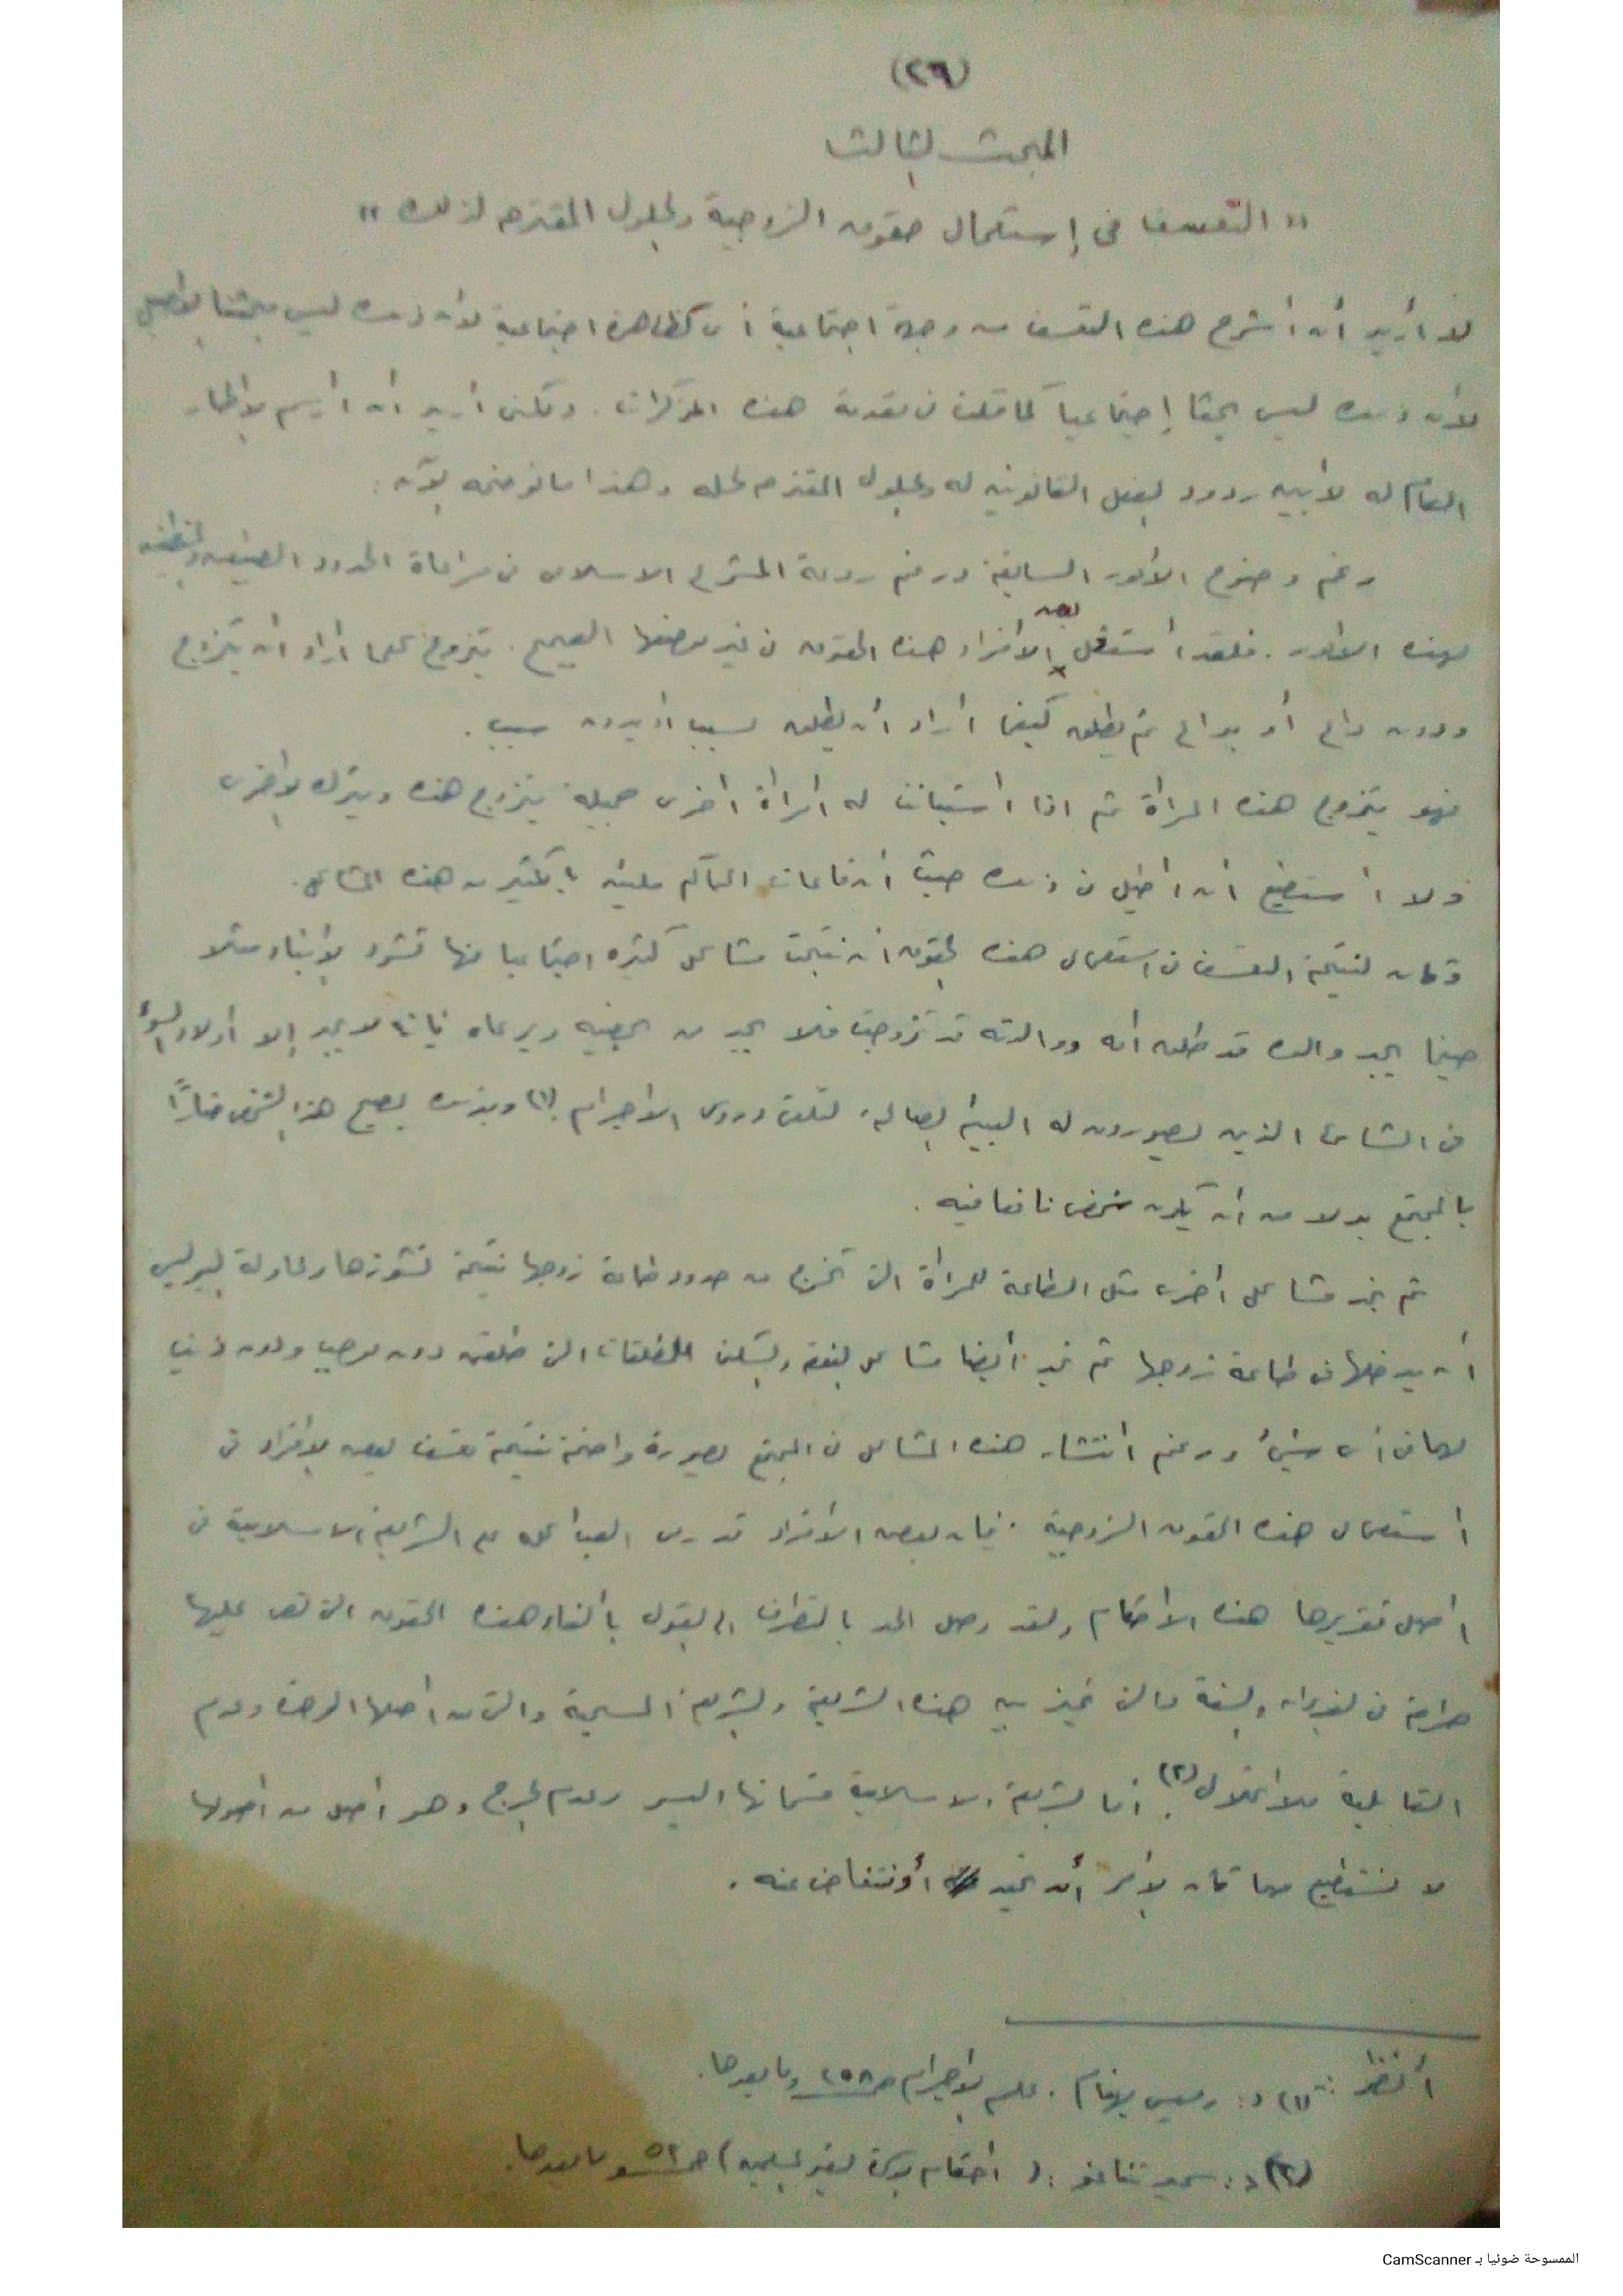 (٢٩)
المبحث الثالث
" التعسف فى إستعمال حقوق الزوجية والحلول المقترح لذلك "
لا أريد أن أشرح هذه التعسف من وجهة اجتماعية أى كظاهرة اجتماعية لأن ذلك ليس بحثنا الأصيل
لأن ذلك ليس بحثا إجتماعيا كما قلت فى مقدمة هذه المذكرات . ولكنى أريد أن أرسم الإطار
العام له لأبين ردود الفعل القانونية له والحلول المقترح لحله وهذا ما نوضحه الآن :
رغم وضوح الأمور السابقة ورغم روعة المشرع الاسلامى فى مراعاة الحدود
لهذه الأمور . فلقد استغل بعض الافراد هذه الحقوق فى غير موضعها الصحيح . يتزوج كلما أراد أن يتزوج
ودون داعى أو بداعى ثم يطلق كيفما أراد أن يطلق بسبب أو بدون سبب .
فهو يتزوج هذه المرأة ثم اذا استبانت له امرأة اخرى جميلة يتزوج هذه ويترك الاخرى
ولا أستطيع أن اطيل فى ذلك حيث أن قاعات المحاكم مليئة بالكثير من هذه المشاكل .
وكان نتيجة التعسف فى استعمال هذه الحقوق ان نتجت مشاكل كثيرة اجتماعيا منها تشرد الأبناء مثلا
حينما يجد والده قد طلق أمه ووالدته قد تزوجت فلا يجد من يرعاه فإنه لا يجد إلا أولاد السوء
فى الشارع الذين يصورون له البيئة الصالحة لتلقى دروس الاجرام (١) وبذلك يصبح هذا الشخص ضارًا
بالمجتمع بدلا من أن يكون شخص نافعا فيه .
ثم نجد مشاكل أخرى مثل الطاعة للمرأة التى تخرج من حدود طاعة زوجها نتيجة نشوزها ومحاولة البوليس
أن يدخلها فى طاعة زوجها ثم نجد أيضا مشاكل النفقة والسكن للمطلقات التى طلقن دون موجب ودون ذنب
لها فى أى شئ ورغم انتشار هذه المشاكل فى المجتمع بصورة واضحة نتيجة تعسف بعض الافراد فى
استعمال هذه الحقوق الزوجية . فإن بعض الافراد قد رمى العبء كله على الشريعة الاسلامية فى
أصل تقريرها هذه الأحكام ولقد وصل الحد بالتطرف الى القول بالغاء هذه الحقوق التى نص عليها
صراحة فى القرآن والسنة والتى تميز بين هذه الشريعة والشريعة المسيحية والتى من اصلها الرضا وعدم
القابلية للانحلال (٢) . أما الشريعة الاسلامية اليسر وعدم الحرج وهو اصل من اصولها
لا نستطيع مهما كان الأمر أن نحيد أو نتغاضى عنه .
أنظر :- (١) د : رمسيس بهنام . علم الإجرام ص ٢٥٨ وما بعدها .
(٢) د : سمير تناغو : ( احكام الأسرة لغير المسلمين ) ص ٥٢ وما بعدها .
الممسوحة ضوئيا بـ CamScanner